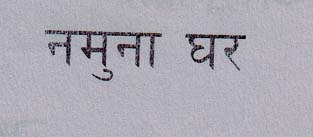 नमुना घर